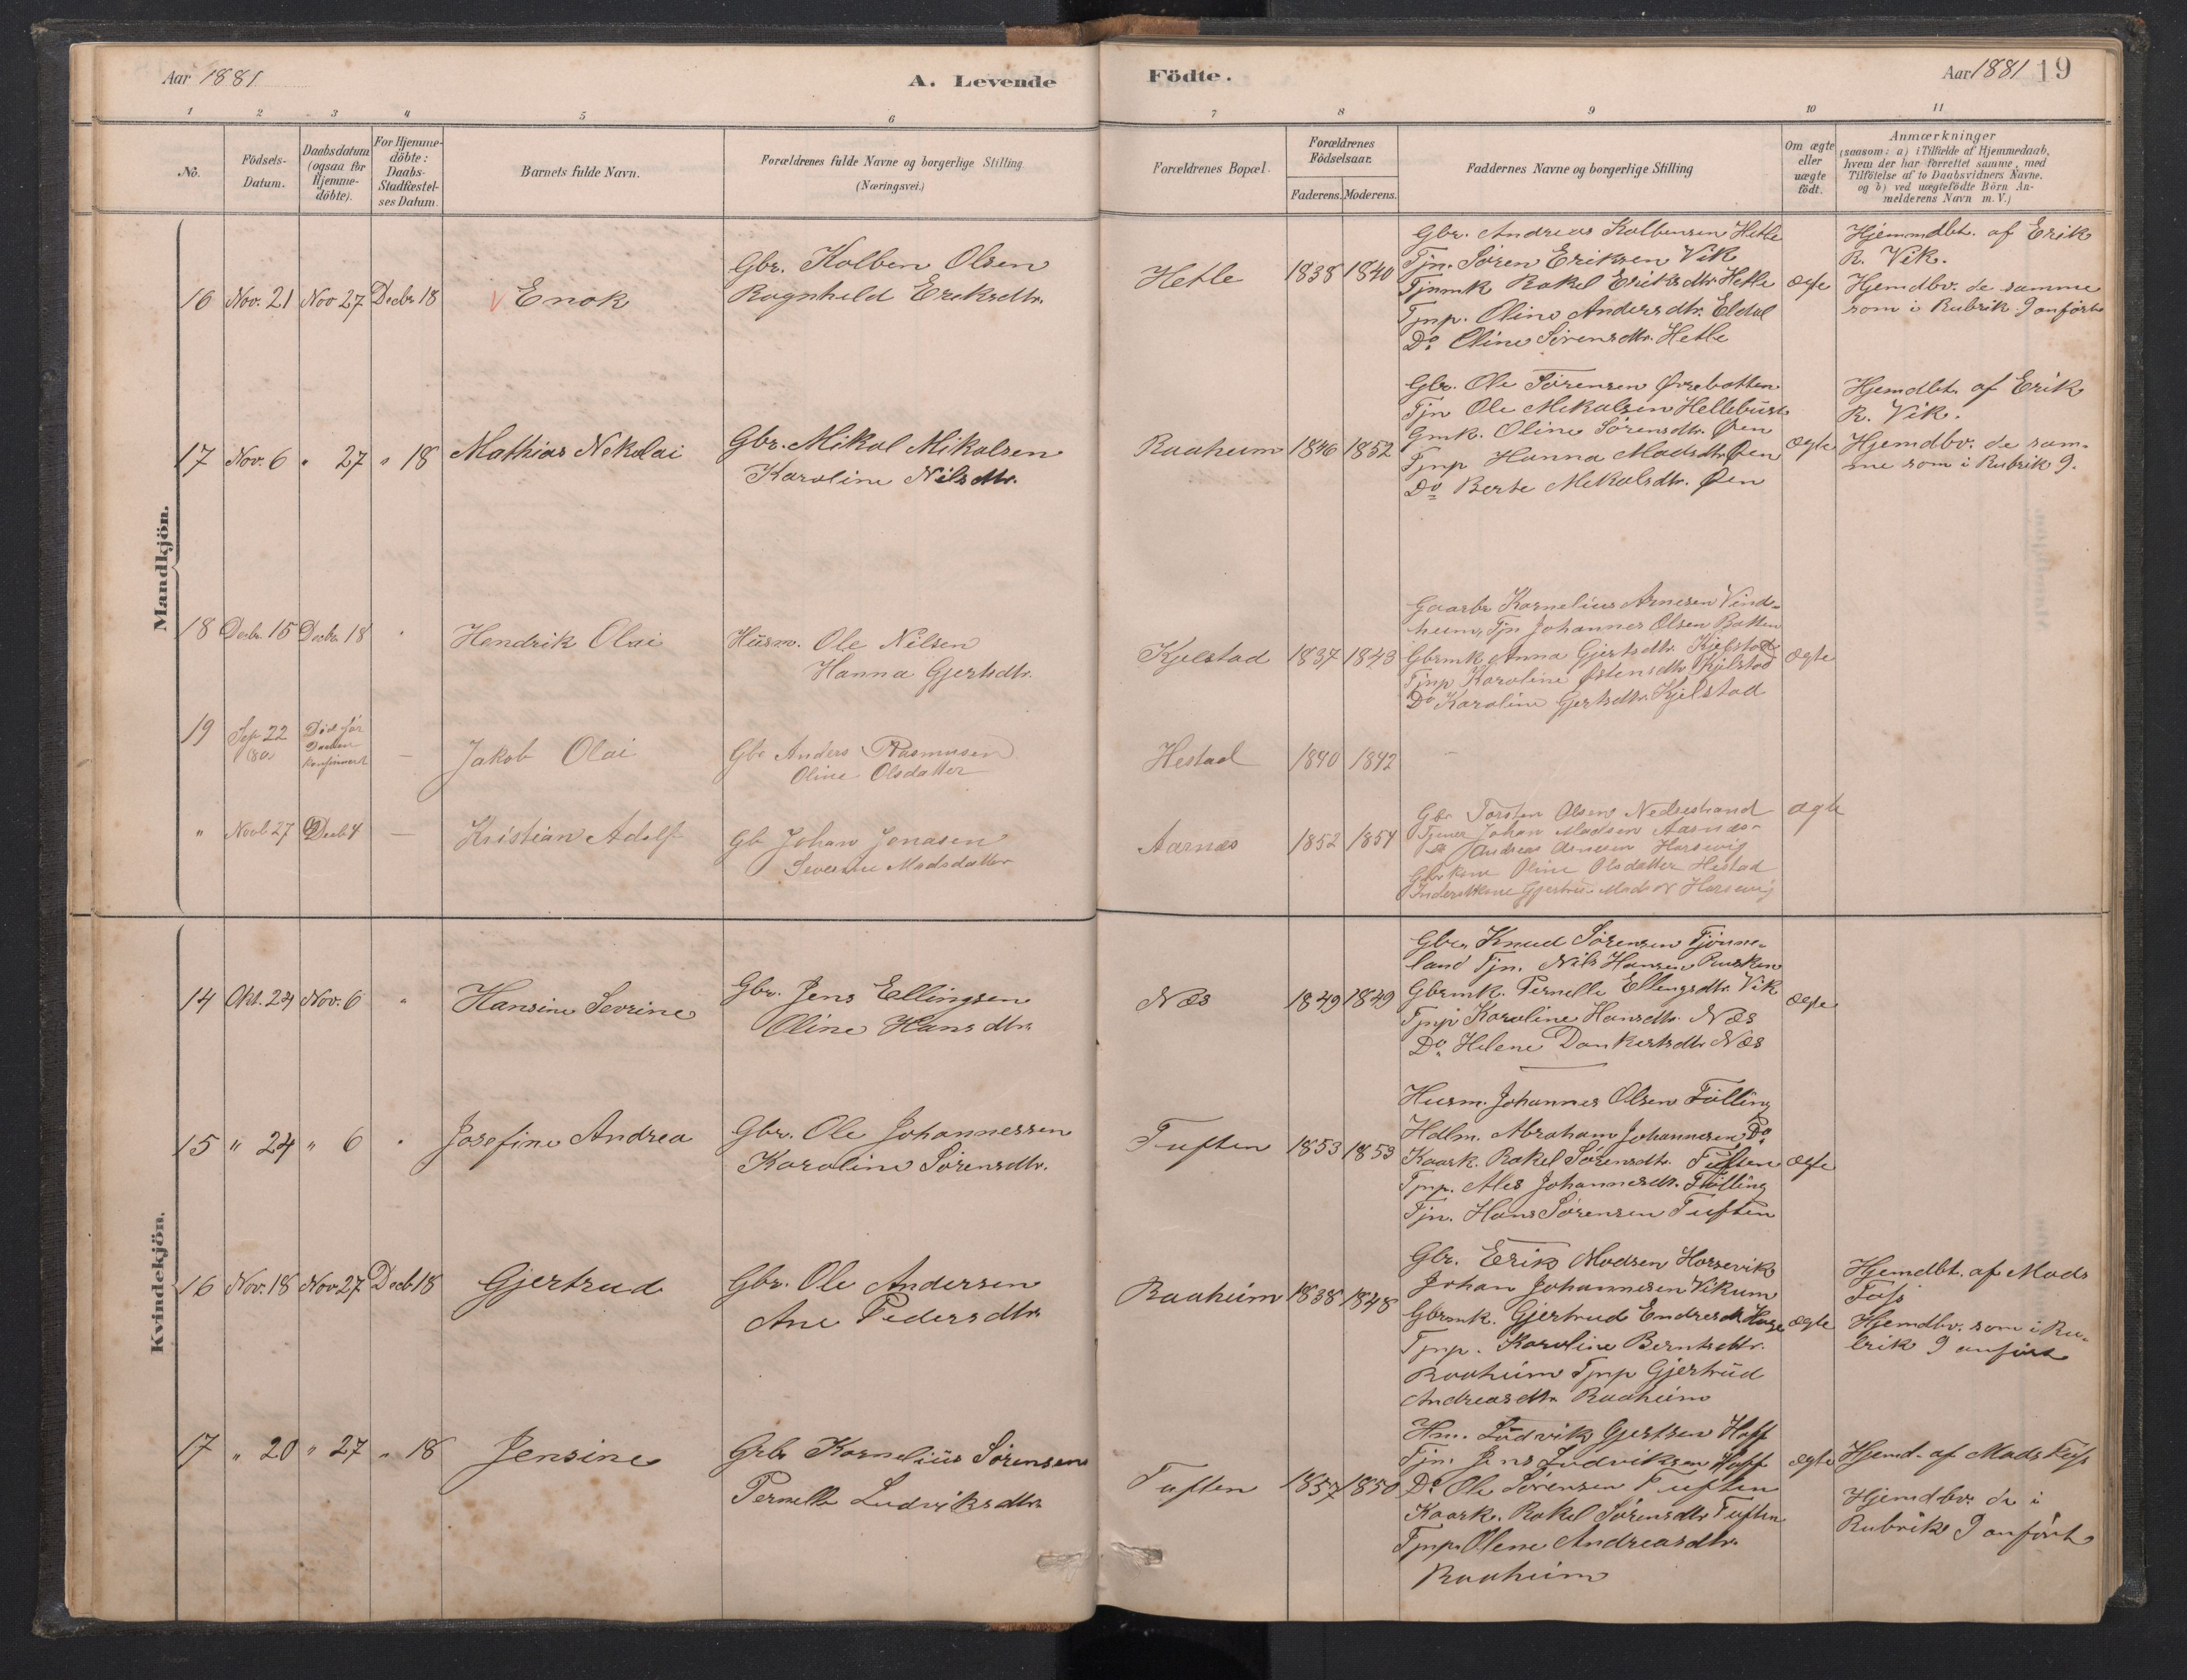 Aar 1881
A. Levende
Födte.
Aar 1881 19
1 2 3 4 5 6 7 8 9 10 11
No.
Födsels-
Datum.
Daabsdatum
(ogsaa for
Hjemme-
döbte).
For Hjemme-
döbte:
Daabs-
Stadfæstel-
ses Datum.
Barnets fulde Navn.
Forældrenes fulde Navne og borgerlige Stilling
(Næringsvei.)
Forældrenes Bopæl.
Forældrenes
Födselsaar.
Faderens. Moderens.
Faddernes Navne og borgerlige Stilling
Om ægte
eller
uægte
födt.
Anmærkninger
(saasom: a) i Tilfælde af Hjemmedaab,
hvem der har forrettet samme, med
Tilföielse af to Daabsvidners Navne.
og b) ved uægtefödte Börn An-
melderens Navn m. V.)
Mandkjön.
16 Nov. 21 Nov 27 Decbr 18 Enok
Gbr. Kolben Olsen
Ragnhild Eriksdtr.
Hetle 1838 1840
Gbr. Andreas Kolbensen Hetle
Tjn. Sören Eriksen Vik
Tjnmk Rakel Eriksdtr Hetle
Tjnp. Oline Andersdtr. Eldal
Do. Oline Sörensdtr. Hetle
ægte
Hjemmdbt. af Erik
R. Vik.
Hjemdbv. de samme
som i Rubrik 9 anförte
17 Nov. 6 " 27 " 18 Mathias Nekolai
Gbr. Mikal Mikalsen
Karoline Nilsdtr.
Raaheim 1846 1852
Gbr. Ole Sörensen Örrebotten
Tjn Ole Mekalsen Hellebust
Gmk. Oline Sörensdtr. Øen
Tjnp Hanna Madsdtr. Øen
Do Berte Mekalsdtr. Øen
ægte
Hjemdbt. af Erik
R. Vik.
Hjemdbv. de sam-
me som i Rubrik 9.
18 Decbr. 15 Decbr. 18 " Hendrik Olai
Husm. Ole Nilsen
Hanna Gjertsdtr.
Kjelstad 1837 1843
Gaarbr Kornelius Arnesen Vind-
heim, Tjn Johannes Olsen Botten
Gbrmk Anna Gjertsdtr. Kjelstad
Tjnp Karoline Østensdtr Kjelstad
Do Karoline Gjertsdtr. Kjelstad
ægte
19 Sep 22
Död för
Daaben
Jakob Olai
Gbr Anders Rasmusen
Oline Olsdatter
Hestad 1840 1842
" Novb 27 Decb 4 — Kristian Adolf
Gb Johan Jonasen
Severine Madsdatter
Aarnæs 1852 1854
Gbr Torsten Olsen Nedrestrand
Tjener Johan Madsen Aarnæs
Do Andreas Arnesen Horsevig
Gbrkone Oline Olsdatter Hestad
ægte
Kvindekjön.
14 Okt. 24 Nov. 6 " Hansine Sevrine
Gbr. Jens Ellingsen
Oline Hansdtr.
Næs 1849 1849
Gbr. Knud Sörensen Tjönne-
land Tjn. Nils Hansen Rusken
Gbrmk. Pernelle Ellingsdtr. Vik
Tjnp Karoline Hansdtr. Næs
Do. Helene Dankertsdtr Næs
ægte
15 " 24 " 6 " Josefine Andrea
Gbr. Ole Johannessen
Karoline Sörensdtr.
Tuften 1853 1853
Husm. Johannes Olsen Fölling
Hdlm. Abraham Johannesen Do.
Kaark. Rakel Sörensdtr. Tuften
Tjnp. Ales Johannesdtr. Fölling
Tjn. Hans Sörensen Tuften
ægte
16 Nov. 18 Nov 27 Decb 18 Gjertrud
Gbr. Ole Andersen
Ane Pedersdtr
Raaheim 1838 1848
Gbr. Erik Madsen Horsevik
Johan Johannesen Vikum
Gbrmk. Gjertrud Endresdtr Hage
Tjnp. Karoline Berntsdtr.
Raaheim Tjnp Gjertrud
Andreasdtr. Raaheim
ægte
Hjemdbt. af Mads
Foss
Hjemdbv. som i Ru-
brik 9 anfört
17 " 20 " 27 " 18 Jensine
Grbr Kornelius Sörensen
Pernelle Ludviksdtr
Tuften 1857 1850
Hm. Ludvik Gjertsen Hoff
Tjn. Jens Ludviksen Hoff
Do Ole Sörensen Tuften
Kaark. Rakel Sörensdtr Tuften
Tjnp. Olene Andreasdtr.
Raaheim
ægte
Hjemd. af Mads Foss
Hjemdbv. de i
Rubrik 9 anfört